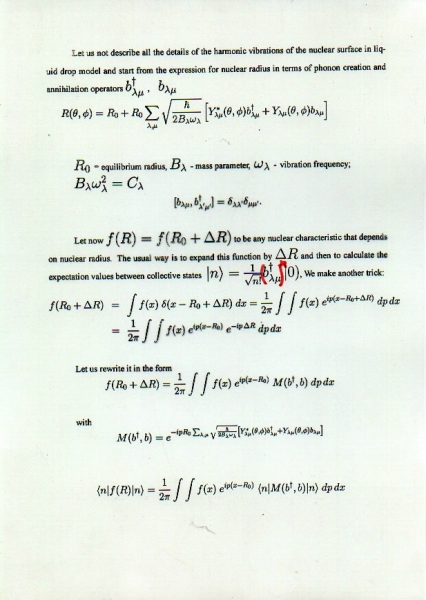 Let us not describe all the details of the harmonic vibrations of the nuclear surface in liq-
uid drop model and start from the expression for nuclear radius in terms of phonon creation and
annihilation operators b†_{λμ} , b_{λμ}
R(θ, φ) = R₀ + R₀ ∑_{λ,μ} √(ħ / 2B_λω_λ) [Y*_{λμ}(θ, φ)b†_{λμ} + Y_{λμ}(θ, φ)b_{λμ}]
R₀ - equilibrium radius, B_λ - mass parameter, ω_λ - vibration frequency;
B_λω²_λ = C_λ
[b_{λμ}, b†_{λ'μ'}] = δ_{λλ'}δ_{μμ'}.
Let now f(R) = f(R₀ + ΔR) to be any nuclear characteristic that depends
on nuclear radius. The usual way is to expand this function by ΔR and then to calculate the
expectation values between collective states |n⟩ = 1/√n! (b†_{λμ})|0⟩, We make another trick:
f(R₀ + ΔR) = ∫ f(x) δ(x − R₀ + ΔR) dx = 1/2π ∫∫ f(x) e^{ip(x−R₀+ΔR)} dp dx
= 1/2π ∫∫ f(x) e^{ip(x−R₀)} e^{−ipΔR} dp dx
Let us rewrite it in the form
f(R₀ + ΔR) = 1/2π ∫∫ f(x) e^{ip(x−R₀)} M(b†, b) dp dx
with
M(b†, b) = e^{−ipR₀ ∑_{λ,μ} √(ħ / 2B_λω_λ) [Y*_{λμ}(θ,φ)b†_{λμ}+Y_{λμ}(θ,φ)b_{λμ}]}
⟨n|f(R)|n⟩ = 1/2π ∫∫ f(x) e^{ip(x−R₀)} ⟨n|M(b†, b)|n⟩ dp dx